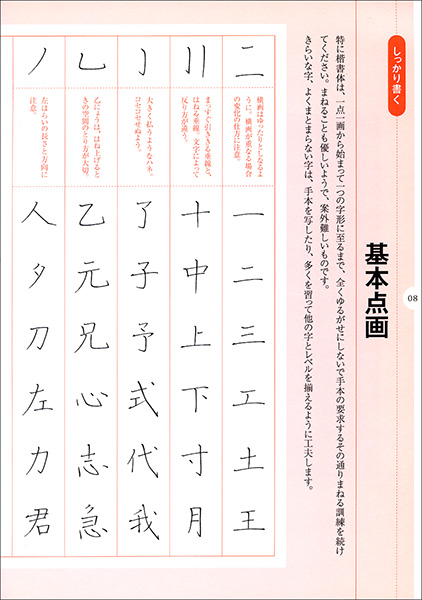 08
しっかり書く
基本点画
特に楷書体は、一点一画から始まって一つの字形に至るまで、全くゆるがせにしないで手本の要求するその通りまねる訓練を続け
てください。まねることも優しいようで、案外難しいものです。
きらいな字、よくまとまらない字は、手本を写したり、多くを習って他の字とレベルを揃えるように工夫します。
二
横画はゆったりとしなるよ
うに。横画が重なる場合
の変化の仕方に注意。
一二三工土王
〢
まっすぐ引ききる垂線と、
はねる垂線。文字によって
反り方が違う。
十中上下寸月
亅
大きく払うようなハネ。
コセコセせぬよう。
了子予式代我
乚
乙にょうは、はね上げると
きの空間のとり方が大切。
乙元兄心志急
ノ
左はらいの長さと方向に
注意。
人夕刀左力君